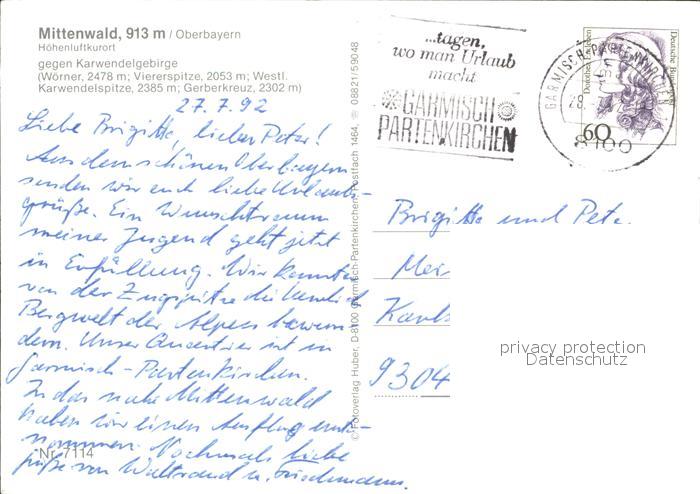 Mittenwald, 913 m / Oberbayern
Höhenluftkurort
gegen Karwendelgebirge
(Wörner, 2478 m; Viererspitze, 2053 m; Westl.
Karwendelspitze, 2385 m; Gerberkreuz, 2302 m)
27.7.92
Liebe Brigitte, lieber Peter!
Aus dem schönen Oberbayern
senden wir euch liebe Urlaubs-
grüße. Ein Wunschtraum
meiner Jugend geht jetzt
in Erfüllung. Wir konnten
von der Zugspitze die herrlich
Bergwelt der Alpen bewun
dern. Unser Quartier ist in
Garmisch-Partenkirchen.
In das nahe Mittenwald
haben wir einen Ausflug unter-
nommen. Nochmals liebe
Grüße von Waltraud u.
Nr. 7114
© Fotoverlag Huber, D-8100 Garmisch-Partenkirchen, Postfach 1464, ☏ 08821/59048
...tagen,
wo man Urlaub
macht
GARMISCH
PARTENKIRCHEN
GARMISCH-PARTENKIRCHEN
28
8100
Deutsche Bundespost
60
Brigitte und Pete
Mei
Karls
9304
privacy protection
Datenschutz